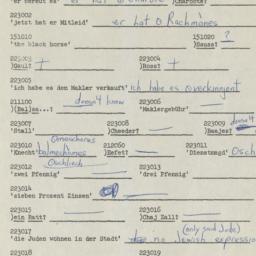 'er bereut es' er hat
223002
'jetzt hat er Mitleid' er hat o Rachmones
151010 151020
'the black horse' )Sauss? ?
223003 223004
)Gaul? + )Ross? +
223005
'ich habe es dem Makler verkauft' ich habe es
211100 doesn't know 223006
)Balem...? 'Maklergebühr'
223007 223008 223009 doesn't
'Stall' )Cheeder? )Baajes?
223010 212060 223011
'Knecht' )Hefet? 'Dienstmagd' Osch
223012 223013
'zwei Pfennig' 'drei Pfennig'
223014
'sieben Prozent Zinsen'
223015 223016
)ein Ratt? )Chaj Zall?
223017 (only said Jude)
'die Juden wohnen in der Stadt' no Jewish expression
223018 223019